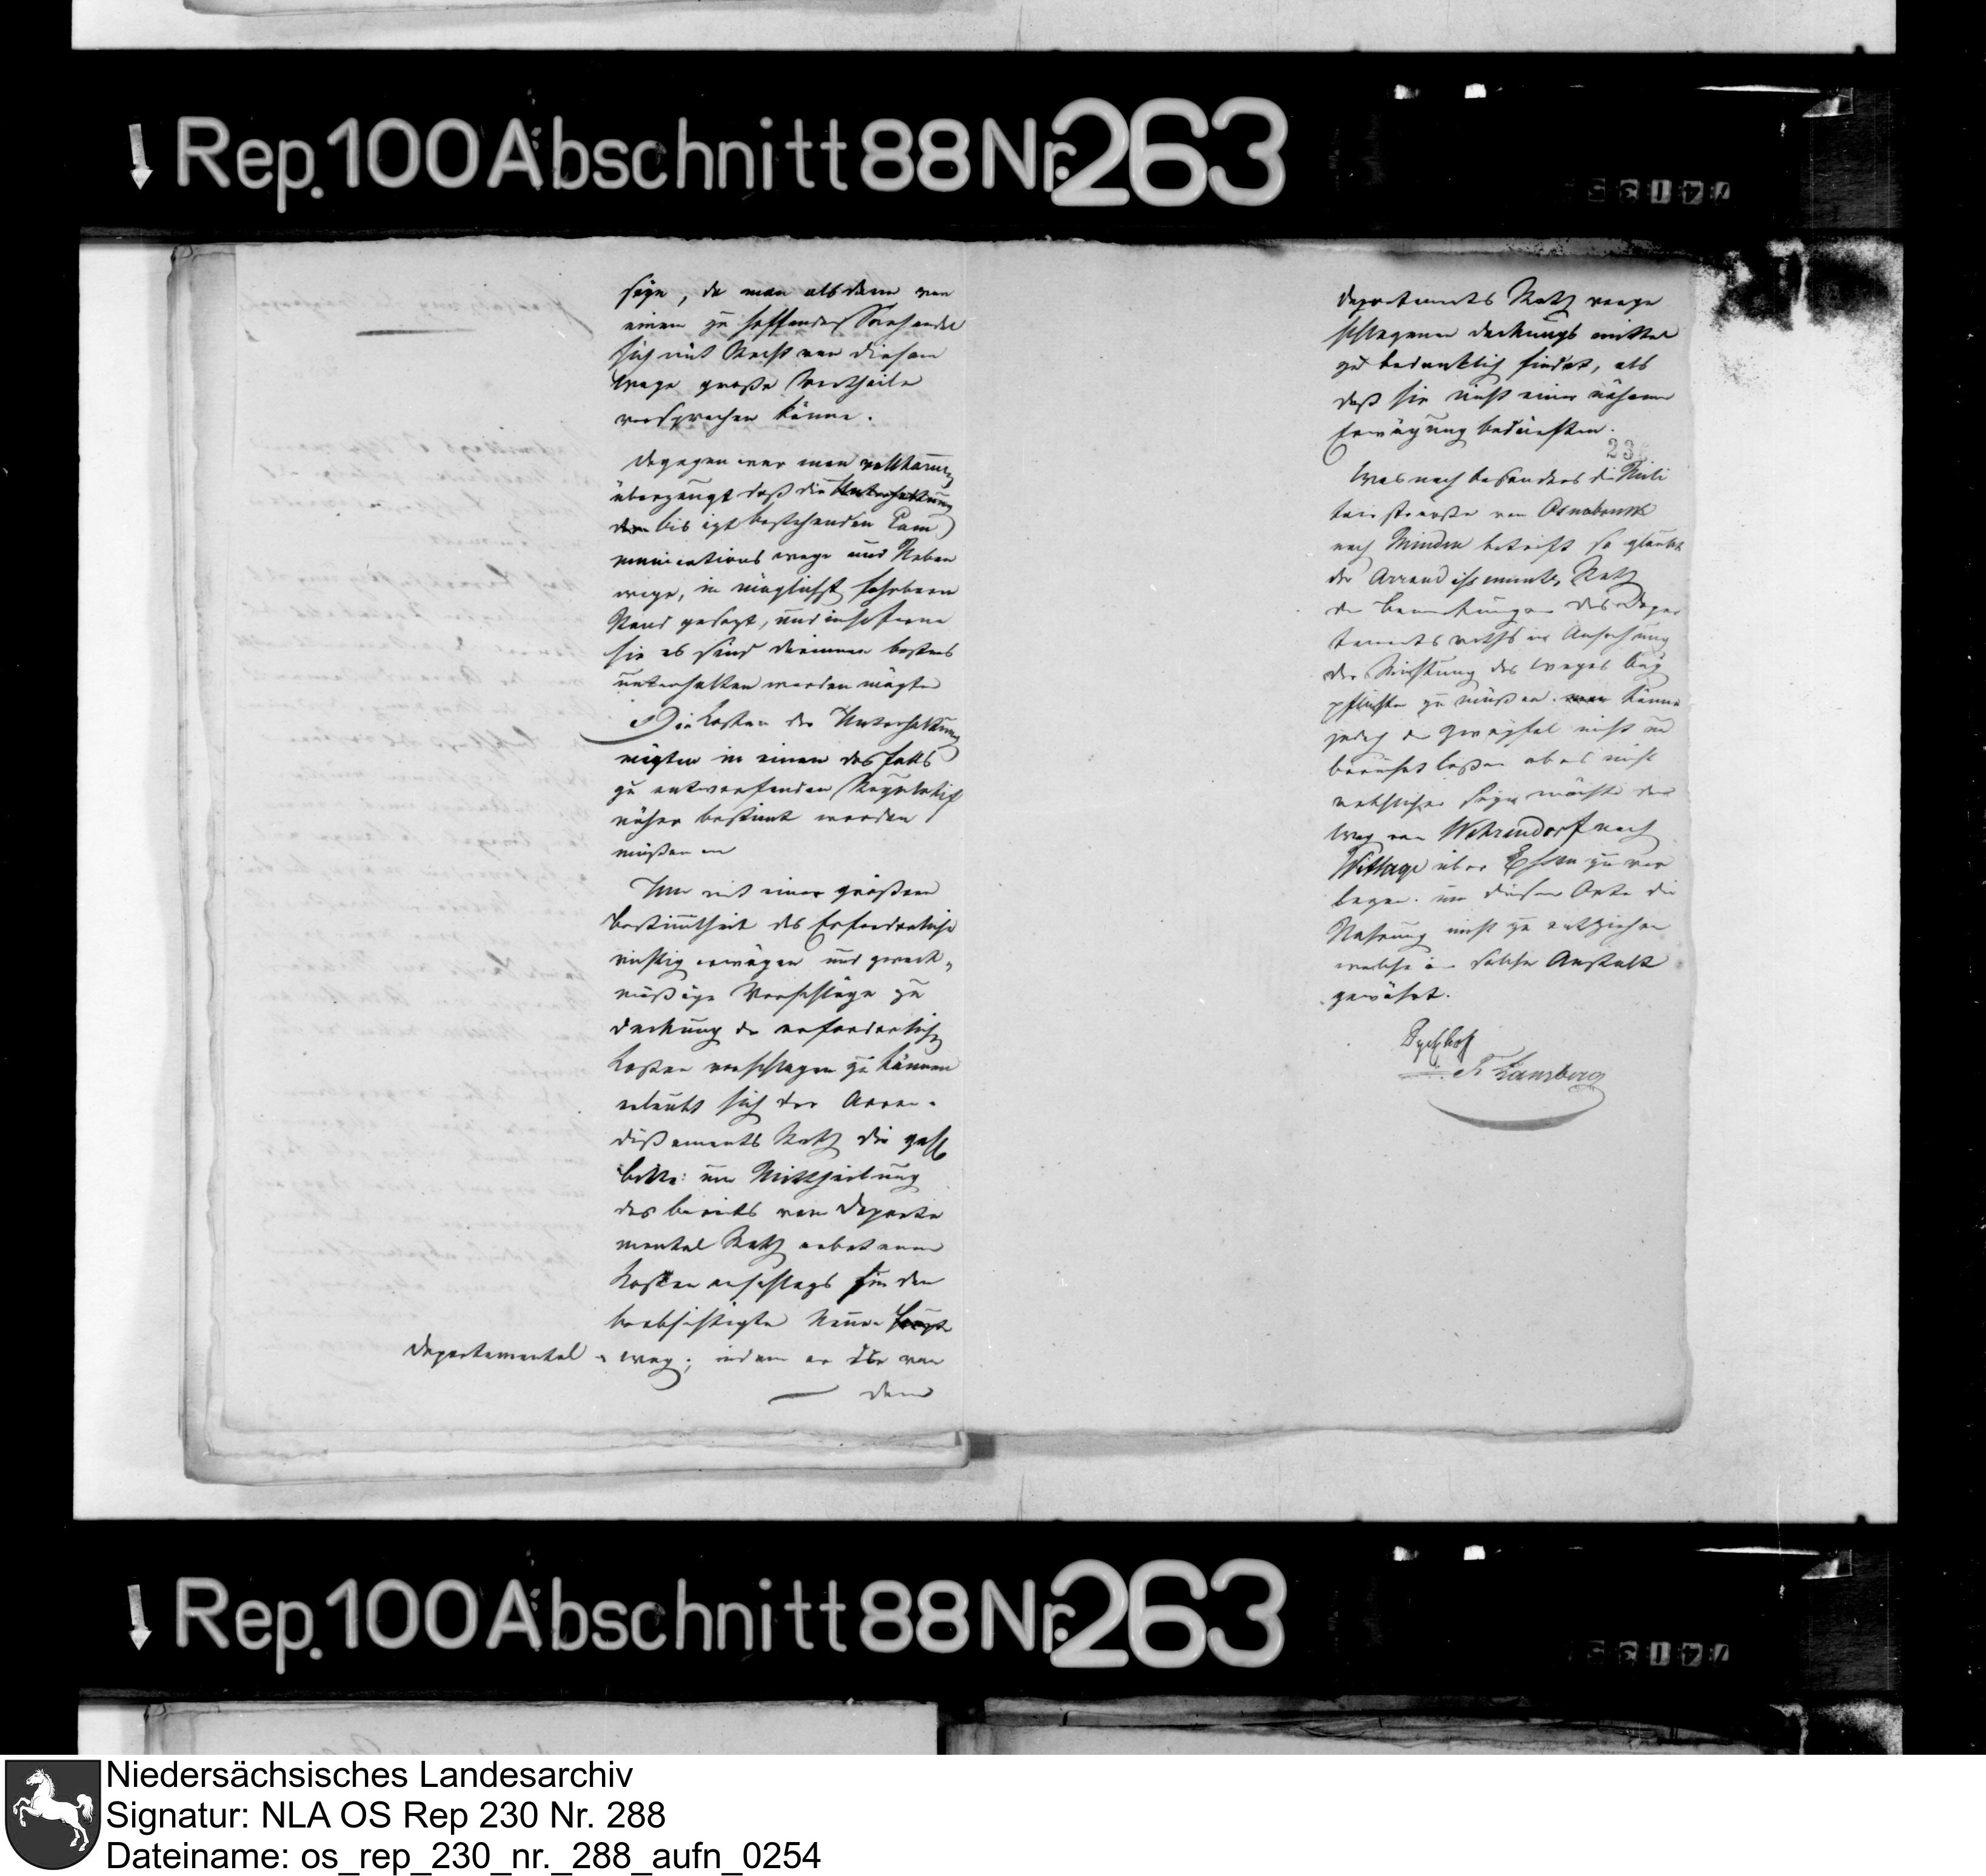 Rep. 100 Abschnitt 88 Nr. 263
seyn, da man alsdann von
einem zu hoffenden Seehandel
sich mit Recht von diesem
Wege große Vortheile
versprechen könne.
Dagegen war man vollkommen
überzeugt daß die Unterhaltung
der bis izt bestehenden Com
municationswege und Neben
wege, in möglichst fahrbaren
Stand gesezt, und insoferne
sie es sind darinnen bestens
unterhalten werden mögten
Die Kosten der Unterhaltung
mögten in einem desfalls
zu entwerfenden Regulativ
näher bestimt werden
müßen
Um mit einer größern
Bestimtheit das Erforderliche
richtig erwägen und zweck-
mäßige Vorschläge zu
Deckung der erforderlichen
Kosten vorschlagen zu können
erlaubt sich der Arron-
dißements Rath die
Bitte: um Mittheilung
des bereits vom Departe
mental Rath erbetenen
Kosten anschlags für den
beabsichtigten neuen
Departemental - weg; indem er die von
dem
Departements Rath vorge
schlagenen Deckungsmittel
zu bedenklich findet, als
daß sie nicht einer nähern
Erwägung bedürften.
23
Was noch besonders die Mili
tairstraße von Osnabruck
nach Minden betrift so glaubt
der Arrondissements Rath
den Bemerkungen des Depar
tements raths in Ansehung
der Richtung des Weges bey
pflichten zu müßen. man könne
jedoch den Zweyfel nicht un
berührt laßen ob es nicht
rathlicher seyn möchte den
Weg von Wehrendorf nach
Wittlage über Essen zu ver
legen. um diesem Orte die
Nahrung nicht zu entziehen
welche eine solche Anstalt
gewährt.
Rep. 100 Abschnitt 88 Nr. 263
Niedersächsisches Landesarchiv
Signatur: NLA OS Rep 230 Nr. 288
Dateiname: os_rep_230_nr._288_aufn_0254